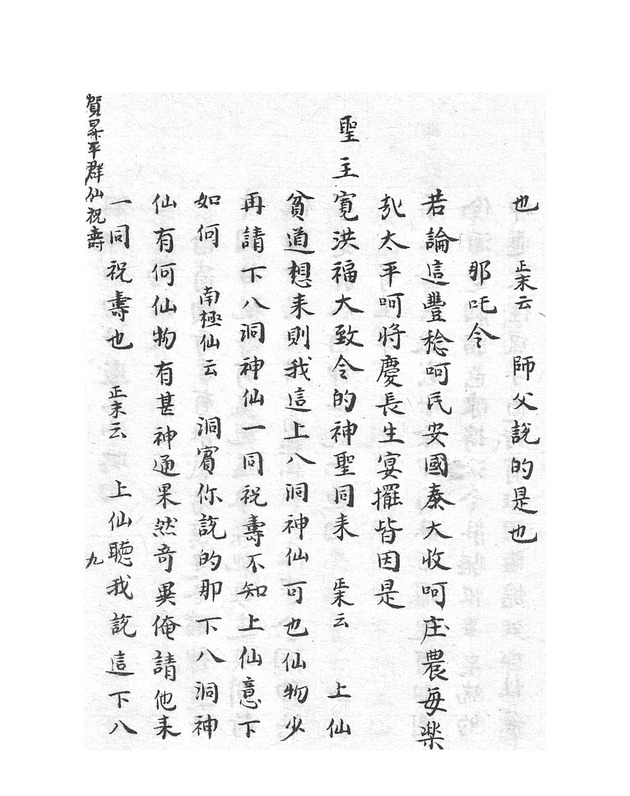 也　正末云　師父說的是也
那吒令
若論這豐稔呵民安國泰大收呵庄農每樂
㐂太平呵將慶長生宴擺皆因是
聖主寬洪福大致令的神聖同来　正末云　上仙
貧道想来則我這上八洞神仙可也仙物少
再請下八洞神仙一同祝壽不知上仙意下
如何　南極仙云　洞賓你說的那下八洞神
仙有何仙物有甚神通果然奇異俺請他来
一同祝壽也　正末云　上仙聽我說這下八
賀昇平群仙祝壽
九